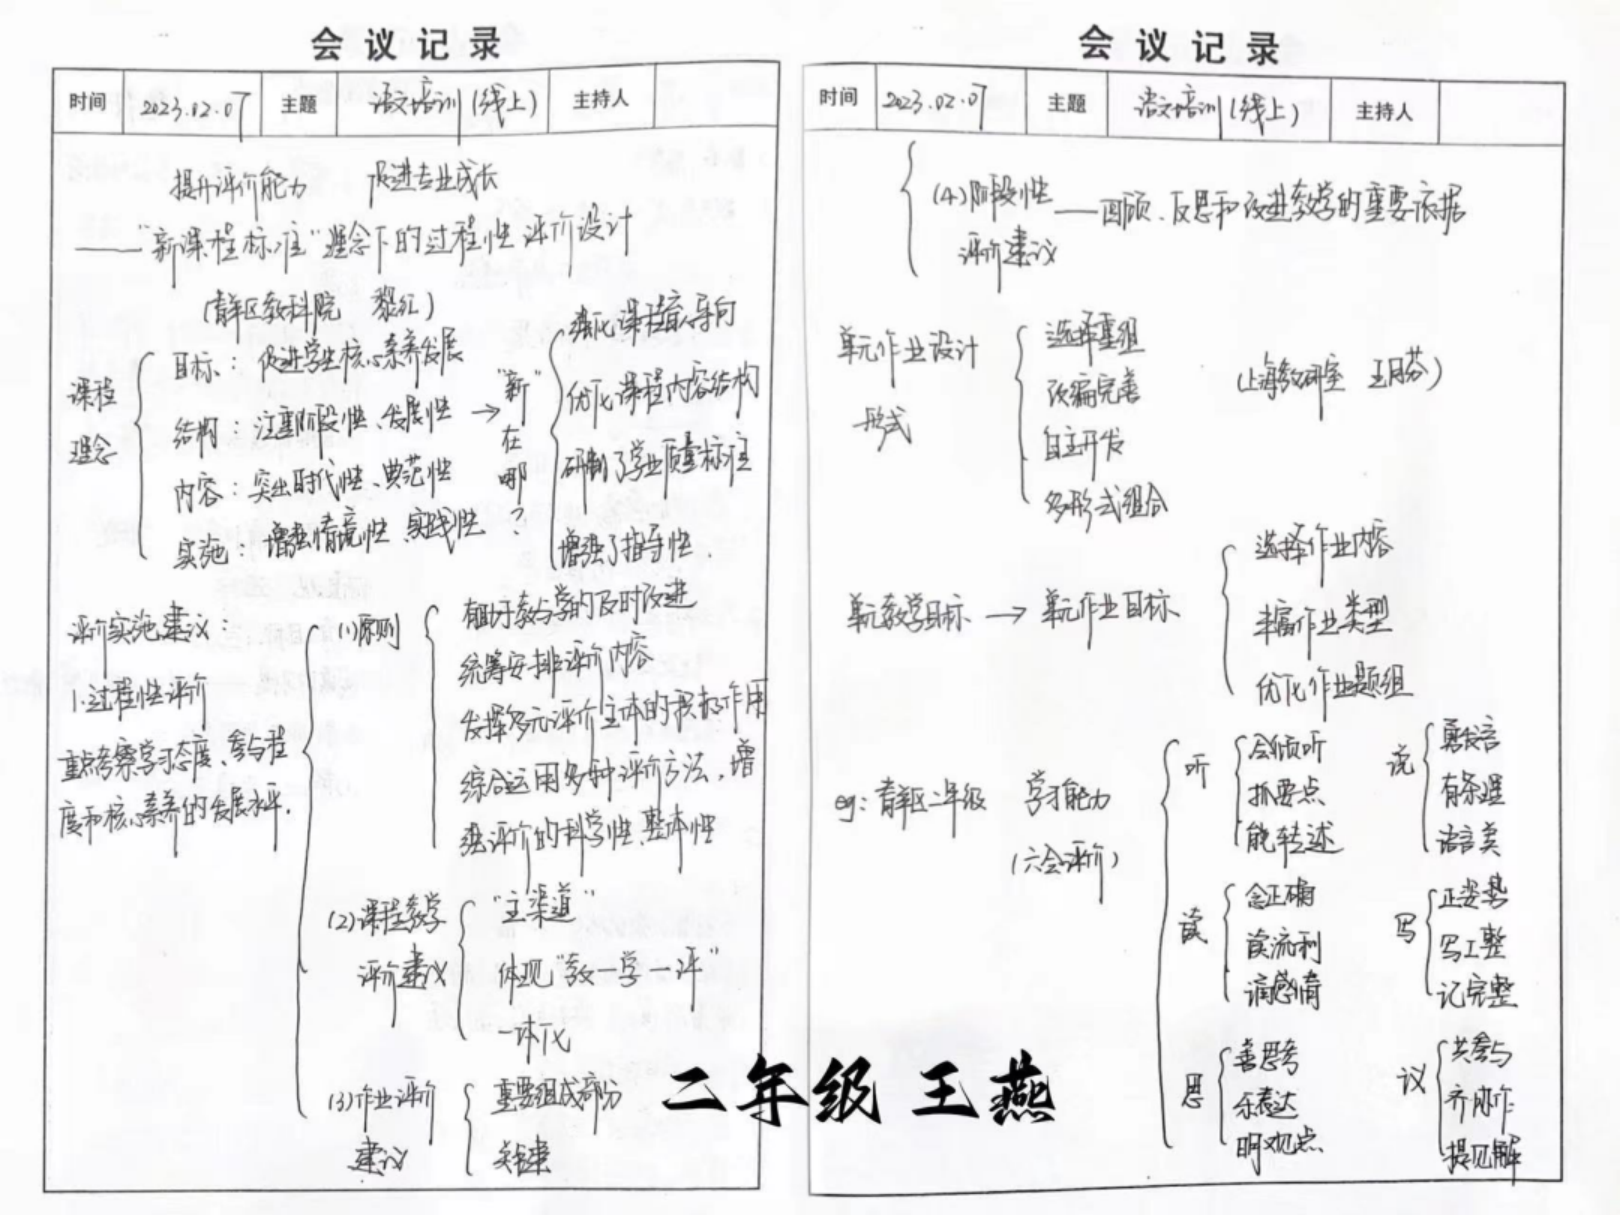 会议记录
时间 2023.02.07 主题 语文培训(线上) 主持人
提升评价能力 促进专业成长
——"新课程标准"理念下的过程性评价设计
(青羊区教科院 黎红)
课程理念
目标：促进学生核心素养发展
结构：注重阶段性、发展性
内容：突出时代性、典范性
实施：增强情境性 实践性
→ "新"在哪?
强化课程育人导向
优化课程内容结构
研制了学业质量标准
增强了指导性.
评价实施建议
1.过程性评价
重点考察学习态度、参与程
度和核心素养的发展水平.
(1)原则
有助于教与学的及时改进
统筹安排评价内容
发挥多元评价主体的积极作用
综合运用多种评价方法，增
强评价的科学性、整体性
(2)课程教学
评价建议
"主渠道"
体现"教—学—评"
一体化
(3)作业评价
建议
重要组成部分
关键
会议记录
时间 2023.02.07 主题 语文培训(线上) 主持人
(4)阶段性
评价建议
——回顾、反思和改进教学的重要依据
单元作业设计
形式
选择重组
改编完善
自主开发
多形式组合
(上海教研室 王月芬)
单元教学目标 → 单元作业目标
选择作业内容
丰富作业类型
优化作业题组
eg: 青羊区二年级 学习能力
(六会评价)
听
会倾听
抓要点
能转述
说
勇发言
有条理
语言美
读
念正确
读流利
诵感情
写
正姿势
写工整
记完整
思
善思考
乐表达
明观点
议
共参与
齐协作
提见解
二年级 王燕